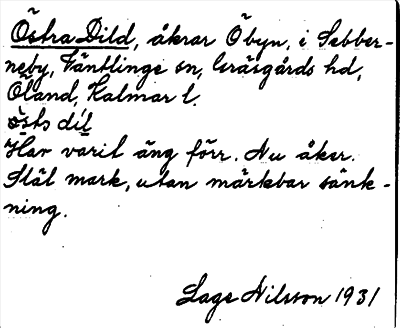 Östra Dild, åkrar Öbyn, i Sebber-
neby, Ventlinge sn, Gräsgårds hd,
Öland, Kalmar l.
östs dil
Har varit äng förr. Nu åker.
Släl mark, utan märkbar sänk-
ning.
Lage Nilsson 1931